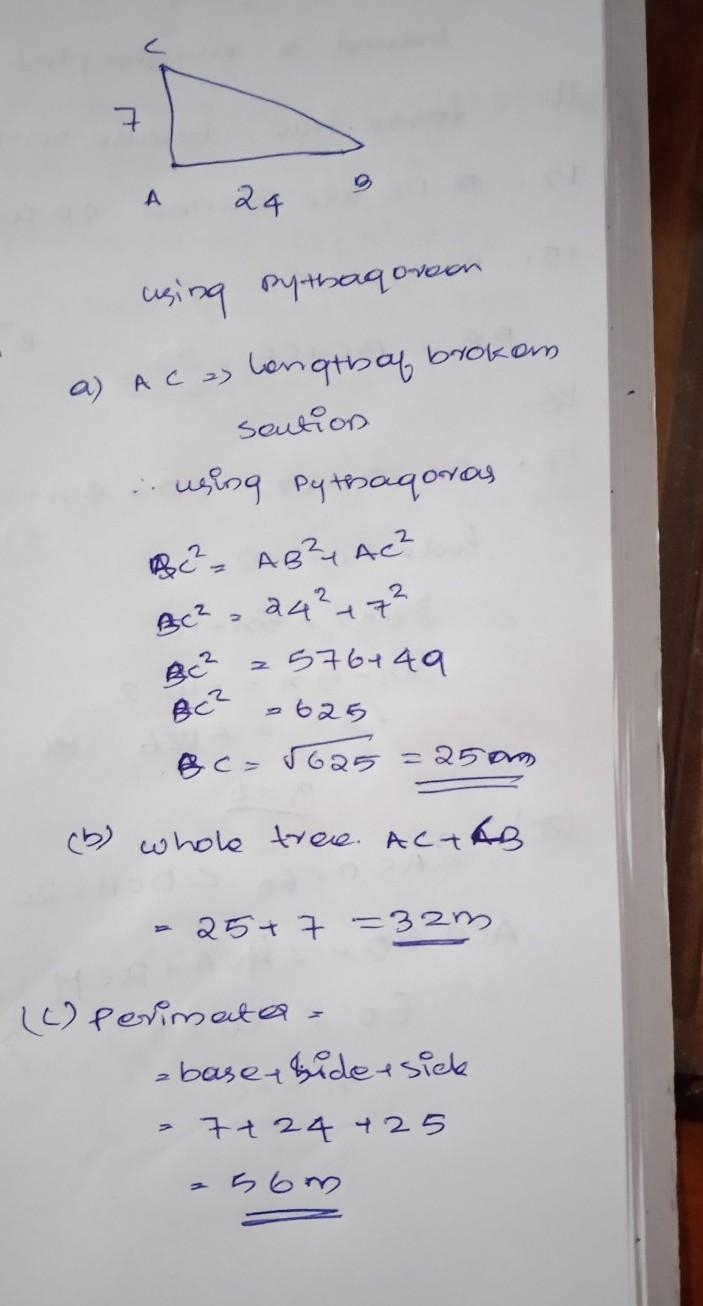 C
7
A 24 B
using pythagorean
a) AC => length of brokam
seution
∴ using Pythagoras
BC² = AB² + AC²
BC² = 24² + 7²
BC² = 576 + 49
BC² = 625
BC = √625 = 25m
(b) whole tree. AC + CB
= 25 + 7 = 32m
(c) Perimeter =
= base + side + side
= 7 + 24 + 25
= 56m